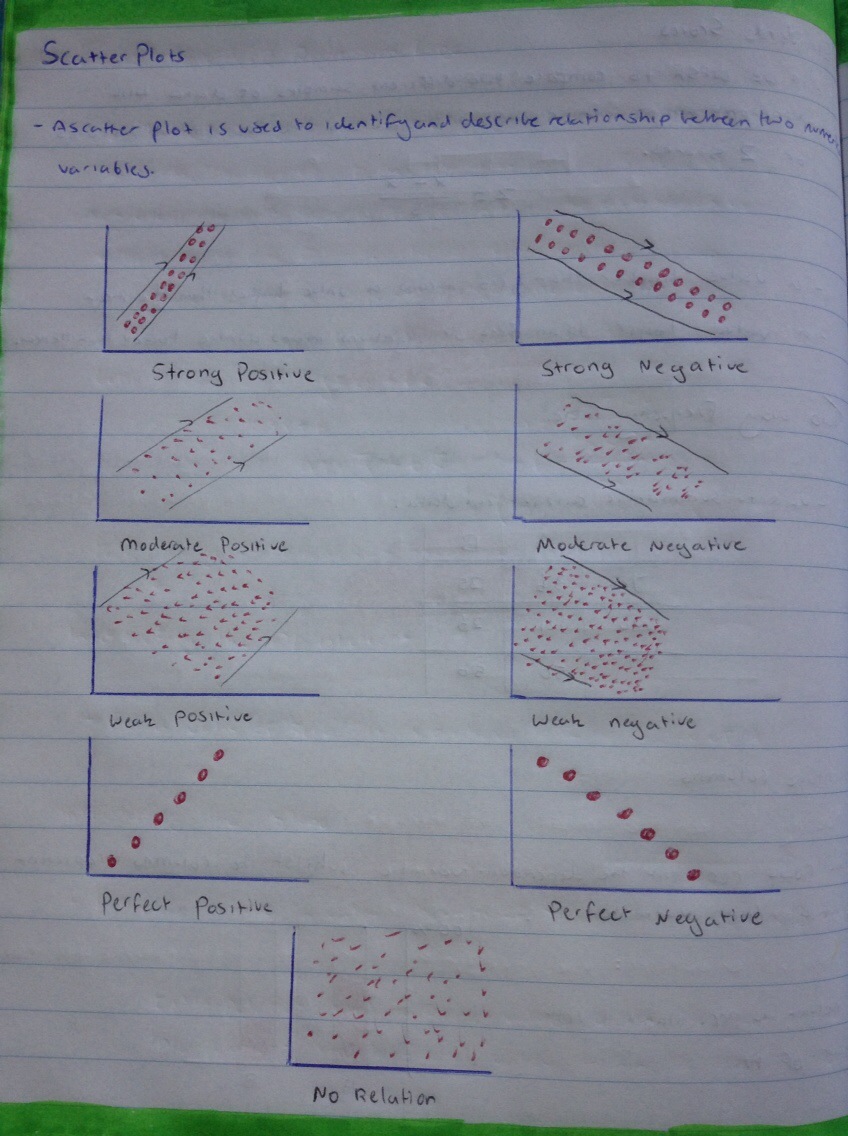 Scatter Plots
- A scatter plot is used to identify and describe relationship between two
variables.
Strong Positive
Strong Negative
Moderate Positive
Moderate Negative
Weak Positive
Weak negative
Perfect Positive
Perfect Negative
No Relation